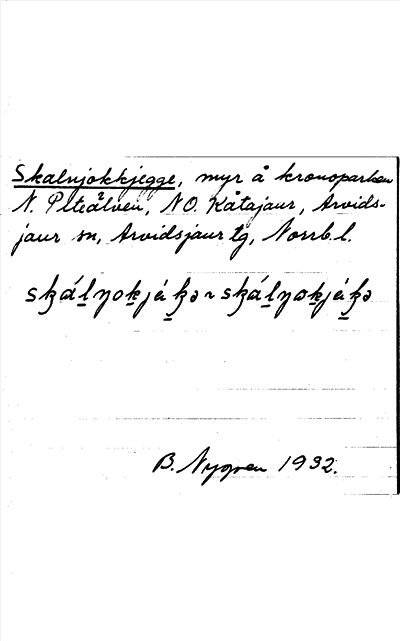 Skalnjokkjegge, myr å kronoparken
N. Piteälven, NO. Kåtajaur, Arvids-
jaur sn, Arvidsjaur tg, Norrb. l.
skáḻŋoḵjéḵə ~ skáḻŋoḵjéḵə
B. Nygren 1932.